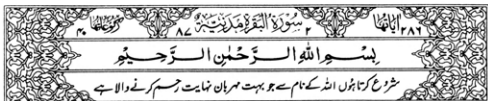 اٰیَاتُهَا ٢٨٦ ٢ سُوْرَةُ الْبَقَرَةِ مَدَنِیَّةٌ ٨٧ رُكُوْعَاتُهَا ٤٠
بِسْمِ اللّٰهِ الرَّحْمٰنِ الرَّحِیْمِ
شروع کرتا ہوں اللہ کے نام سے جو بہت مہربان نہایت رحم کرنے والا ہے